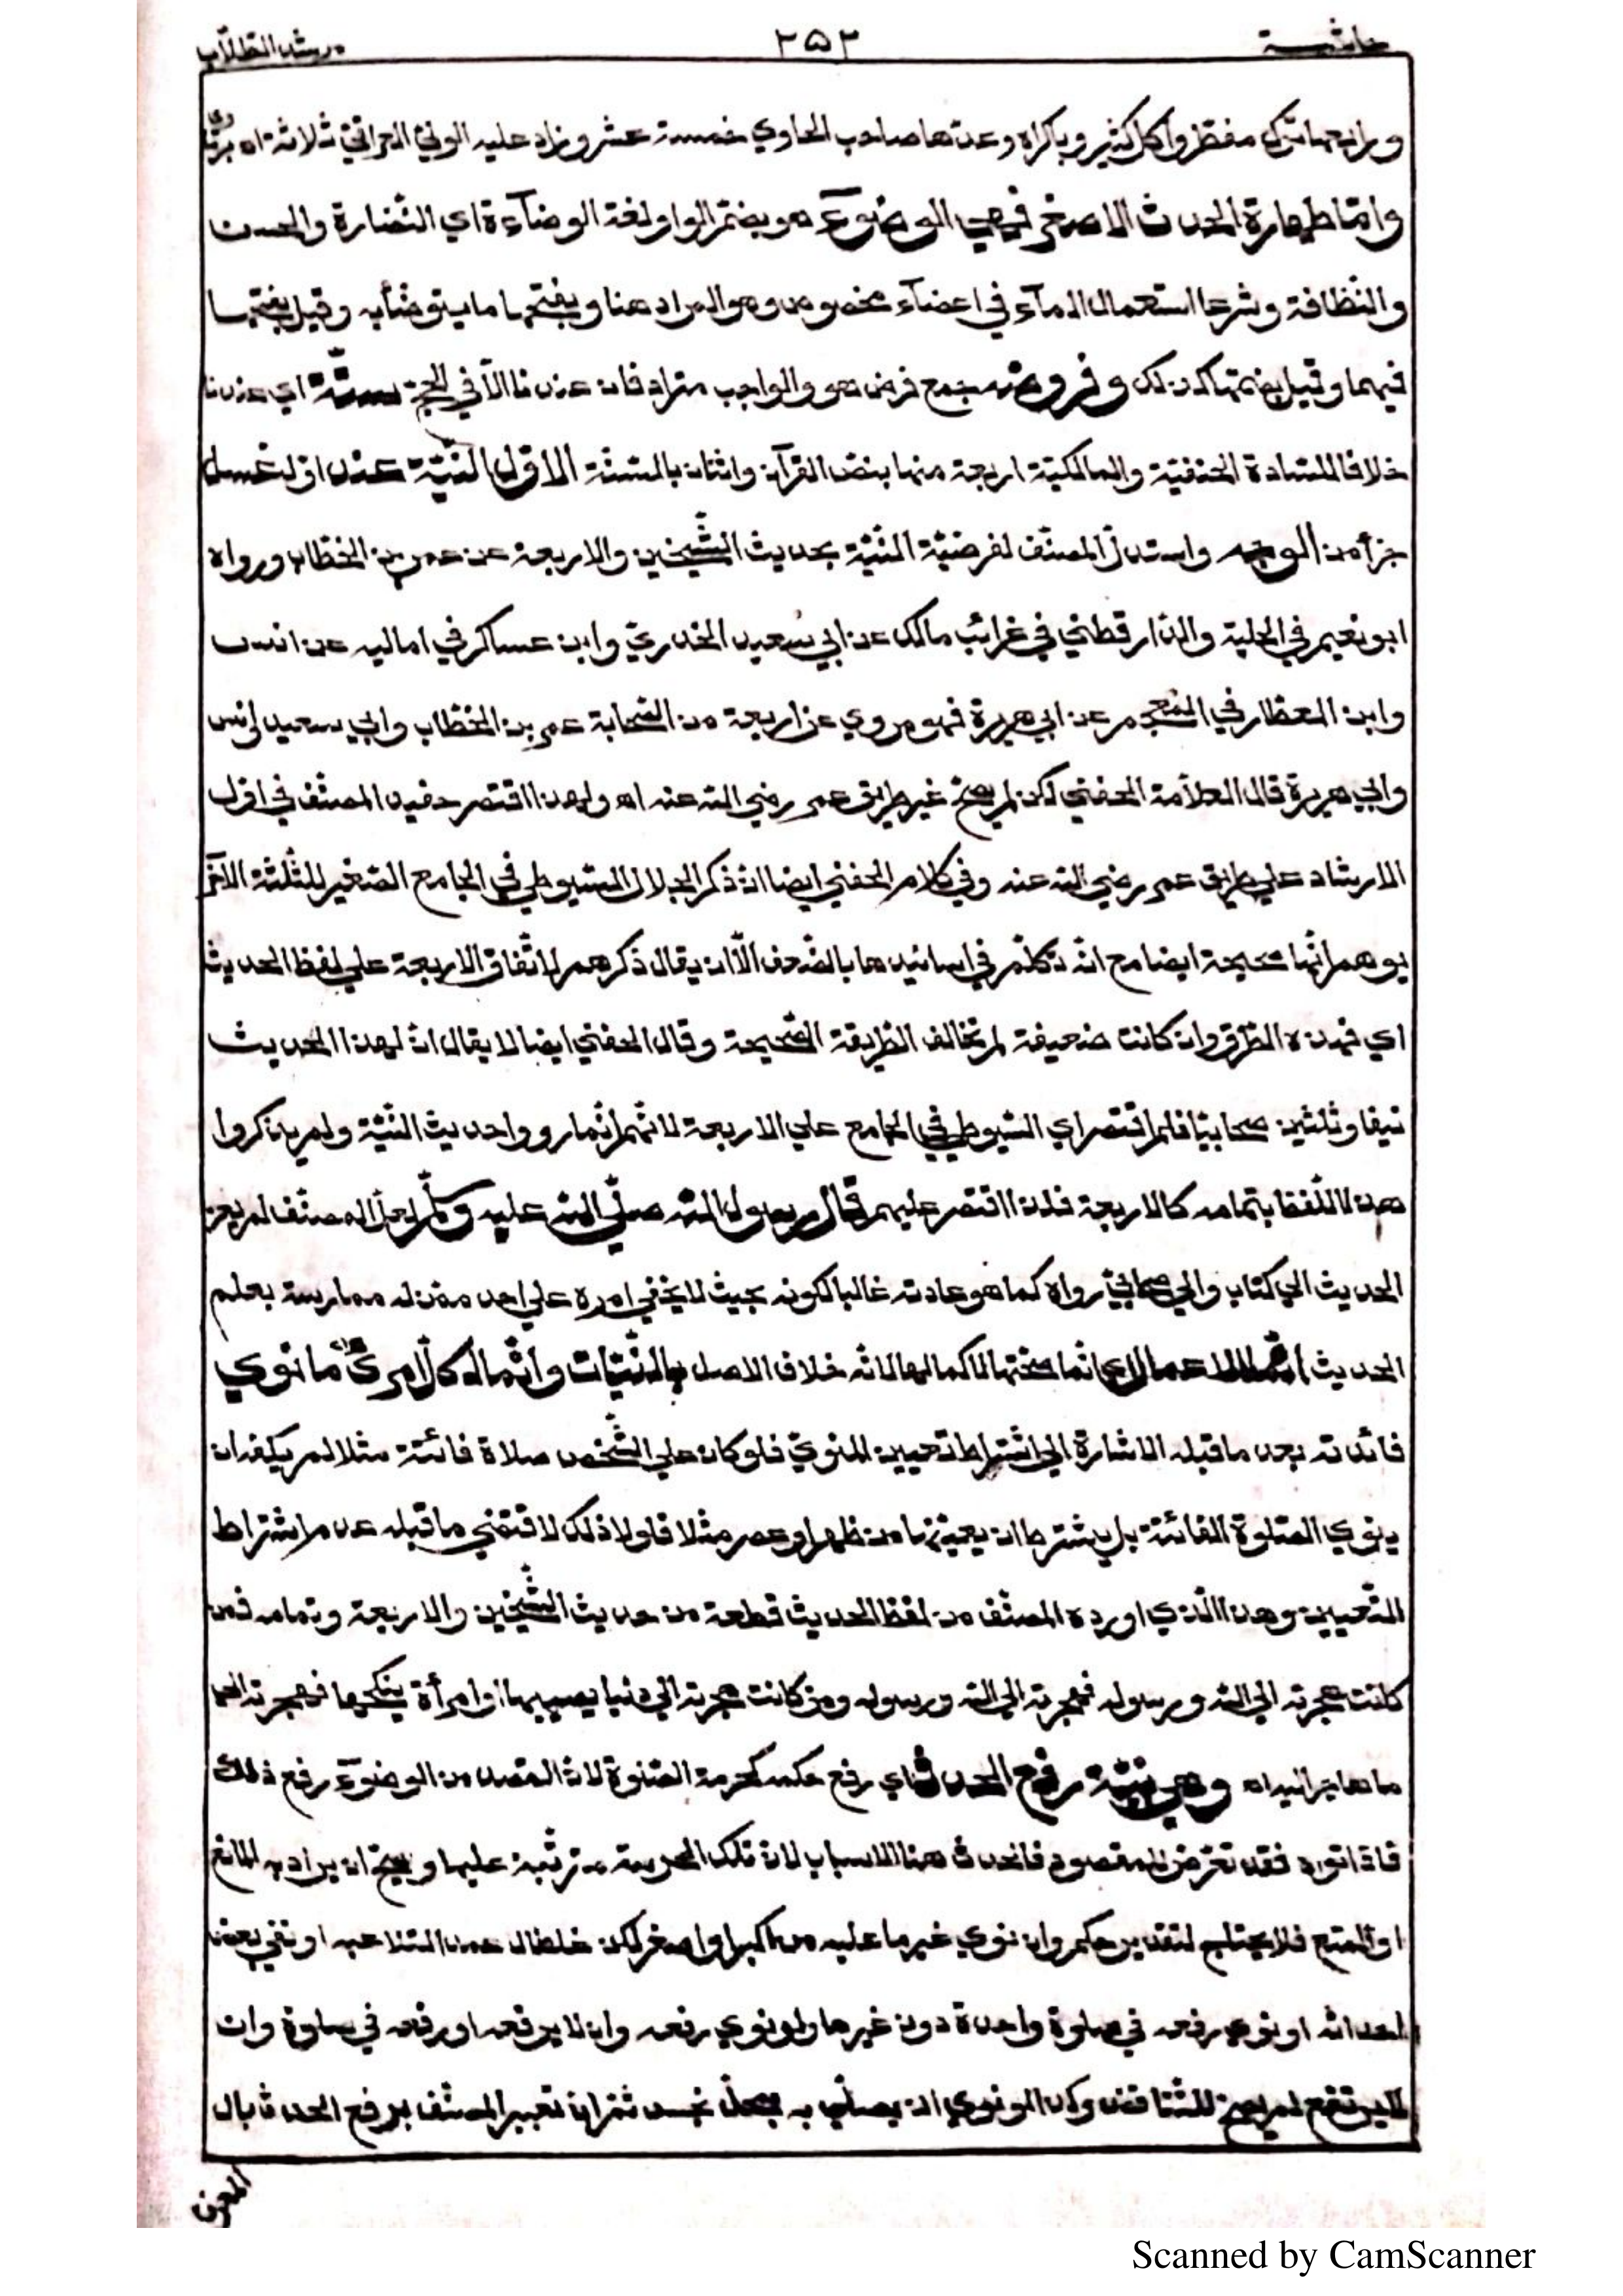 حاشية ٢٥٢ مرشد الطلاب
ورابعها ترك مفطر واكل كثير وباكراه وعدّها صاحب الحاوي خمسة عشر وزاد عليه الولي العراقي ثلاثة اه
وامّا طهارة الحدث الاصغر فهي الوضوٓء هو بضمّ الواو لغة الوضآءة اي النّضارة والحسن
والنّظافة وشرعا استعمال المآء في اعضآء مخصوص وهو المراد هنا وبفتحها ما يتوضّأ به وقيل بفتحها
فيهما وقيل بضمّها كذلك وفروضه جمع فرض هو والواجب مترادفان عندنا الّا في الحجّ ستّة اي عندنا
خلافا للسّادة الحنفيّة والمالكيّة اربعة منها بنصّ القرآن واثنان بالسّنّة الاوّل النّيّة عند اوّل غسل
جزأ من الوجه واستدلّ المصنّف لفرضيّة النّيّة بحديث الشّيخين والاربعة عن عمر بن الخطّاب ورواه
ابو نعيم في الحلية والدّارقطني في غرائب مالك عن ابي سعيد الخدريّ وابن عساكر في اماليه عن انس
وابن العطّار في المعجم عن ابي هريرة فهو مروي عن اربعة من الصّحابة عمر بن الخطّاب وابي سعيد وانس
وابي هريرة قال العلّامة الحفني لكن لم يصحّ غير طريق عمر رضي الله عنه اه ولهذا اقتصر حفيد المصنّف في اوّل
الارشاد علي طريق عمر رضي الله عنه وفي كلام الحفني ايضا انّ ذكر الجلال السّيوطي في الجامع الصّغير للثّلثة الاخر
يوهم انّها صحيحة ايضا مع انّه تكلّم في اسانيدها بالضّعف الّا ان يقال ذكرهم لاتّفاق الاربعة علي لفظ الحديث
اي فهذه الطّرق وان كانت ضعيفة لم تخالف الطّريقة الصّحيحة وقال الحفني ايضا لا يقال انّ لهذا الحديث
نيّفا وثلثين صحابيّا فلم اقتصر اي السّيوطي في الجامع علي الاربعة لانّهم انّما رووا حديث النّيّة ولم يذكروا
هذا اللّفظ بتمامه كالاربعة فلذا اقتصر عليهم قال رسول الله صلّي الله عليه وسلّم لعلّ المصنّف لم يعز
الحديث الي كتاب والي صحابيّ رواه كما هو عادته غالبا لكونه بحيث لا يخفي امره علي احد ممّن له ممارسة بعلم
الحديث انّما الاعمال اي انّما صحّتها لا كمالها لانّه خلاف الاصل بالنّيّات وانّما لكلّ امرئ ما نوي
فائدته بعد ما قبله الاشارة الي اشتراط تعيين المنويّ فلو كان علي الشّخص صلاة فائتة مثلا لم يكفه ان
ينوي الصّلوة الفائتة بل يشترط ان يعيّنها من ظهر او عصر مثلا فلولا ذلك لاقتضي ما قبله عدم اشتراط
التّعيين وهذا الّذي اورده المصنّف من لفظ الحديث قطعة من حديث الشّيخين والاربعة وتمامه فمن
كانت هجرته الي الله ورسوله فهجرته الي الله ورسوله ومن كانت هجرته الي دنيا يصيبها او امرأة ينكحها فهجرته الي
ما هاجر اليه اه وهي نيّة رفع الحدث اي رفع حكمه كحرمة الصّلوة لانّ القصد من الوضوٓء رفع ذلك
فاذا نواه فقد تعرّض للمقصود فالحدث هنا الاسباب لانّ تلك الحرمة مترتّبة عليها ويصحّ ان يراد به المانع
او المنع فلا يحتاج لتقدير حكم وان نوي غير ما عليه من اكبر او اصغر لكن غلطا لا عمدا لتلاعبه او نفي بعض
احداثه او نوي رفعه في صلوة واحدة دون غيرها ولو نوي رفعه وان لا يرفعه او رفعه في صلوة وان
لا يرتفع لم يصحّ للتّناقض وكذا لو نوي ان يصلّي به بمحلّ نجس ثمّ ان تعبير المصنّف برفع الحدث بال
المعرف
Scanned by CamScanner